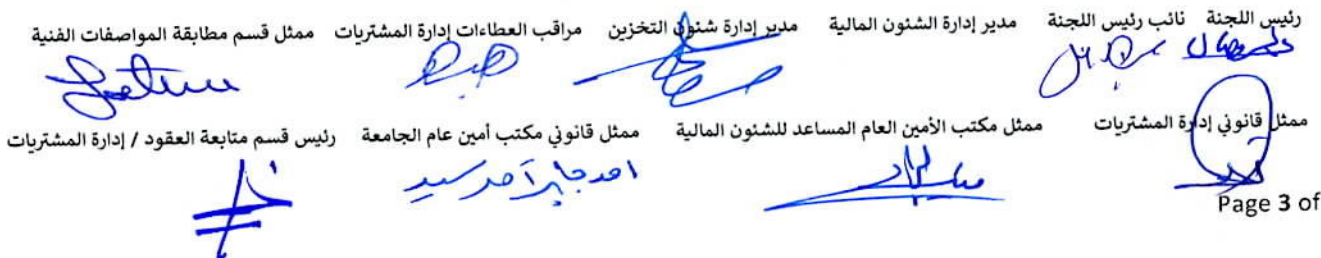 رئيس اللجنة نائب رئيس اللجنة مدير إدارة الشئون المالية مدير إدارة شئون التخزين مراقب العطاءات إدارة المشتريات ممثل قسم مطابقة المواصفات الفنية
ممثل قانوني إدارة المشتريات ممثل مكتب الأمين العام المساعد للشئون المالية ممثل قانوني مكتب أمين عام الجامعة رئيس قسم متابعة العقود / إدارة المشتريات
احمد جابر احمد سيد
Page 3 of